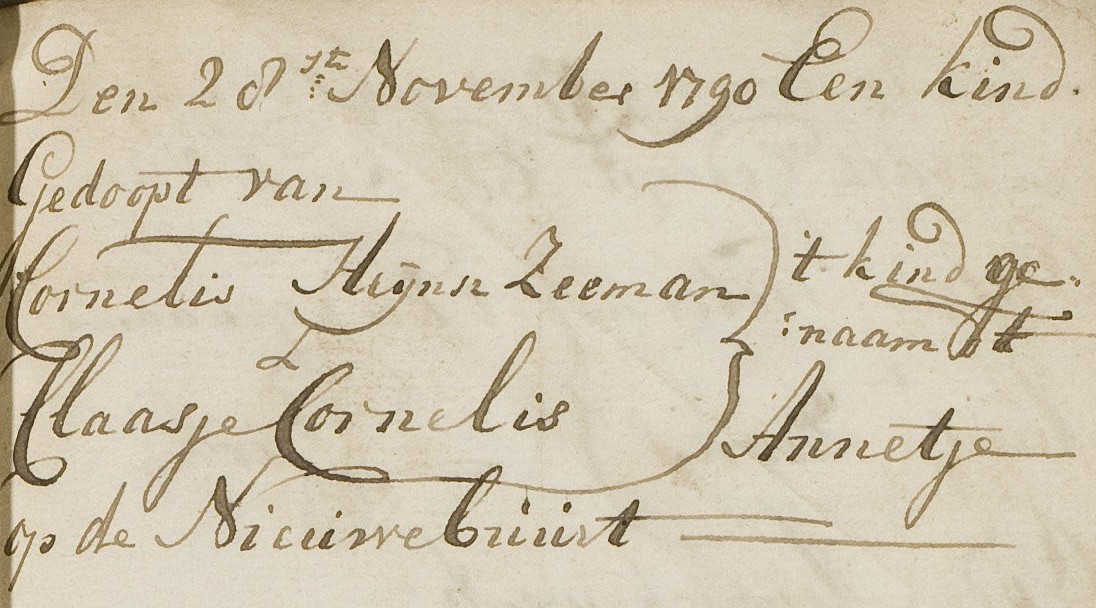 Den 28st November 1790 Een kind
Gedoopt van
Cornelis Heijnsz Zeeman
't kind ge
naamt
&
Claasje Cornelis
Annetje
op de Nieuwe buurt